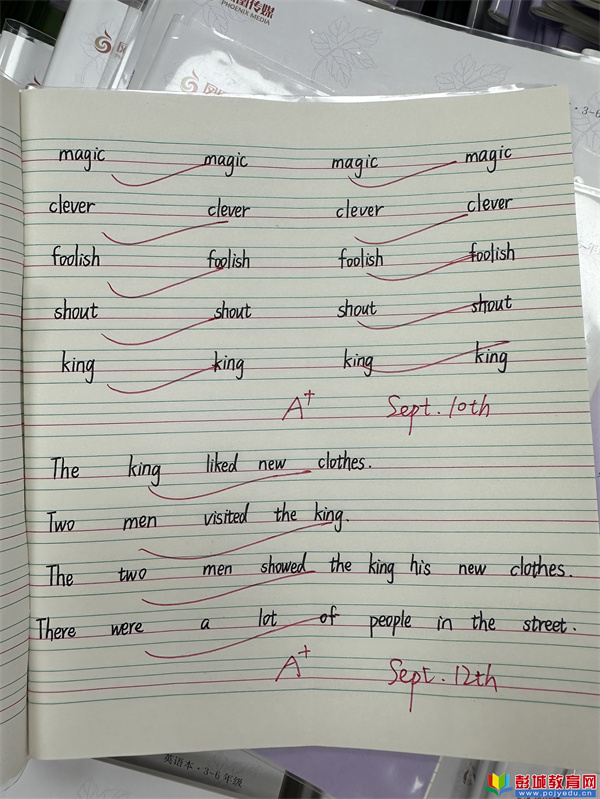 凰传媒
PHOENIX MEDIA
magic magic magic magic
clever clever clever clever
foolish foolish foolish foolish
shout shout shout shout
king king king king
A+ Sept. 10th
The king liked new clothes.
Two men visited the king.
The two men showed the king his new clothes.
There were a lot of people in the street.
A+ Sept. 12th
英语本·3-6年级
彭城教育网
www.pcjyedu.cn